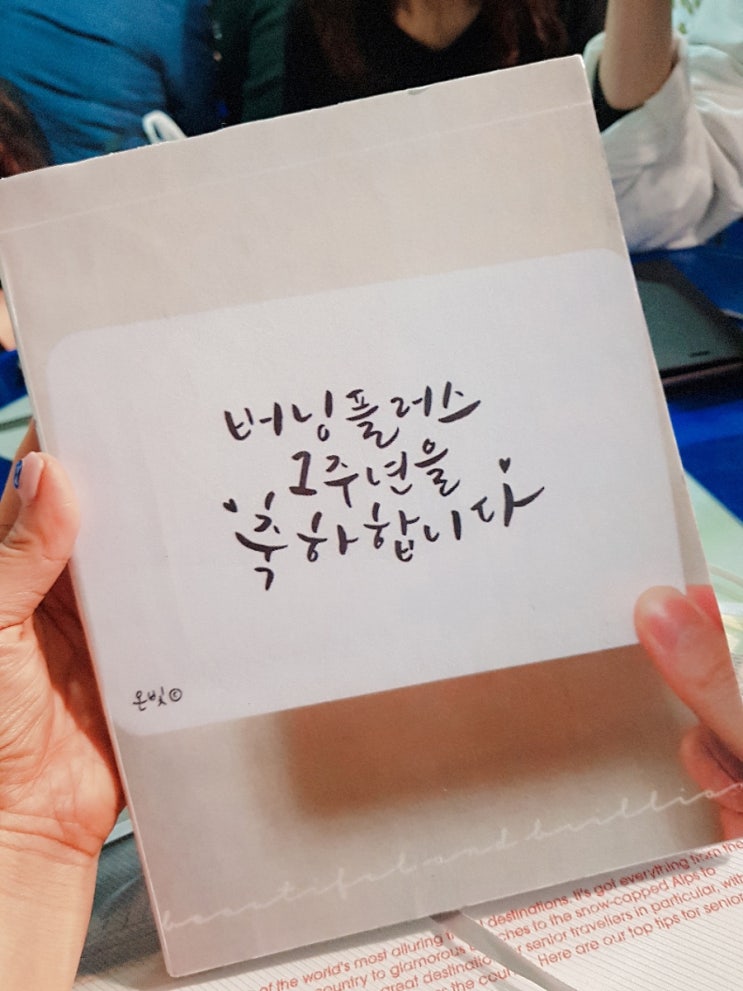 버닝플러스
1주년을
축하합니다
온빛©
beautiful and brillian
of the world's most alluring destinations. It's got everything from the
country to glamorous ches to the snow-capped Alps to
great destinatio senior travellers in particular, with
the cou Here are our top tips for senior